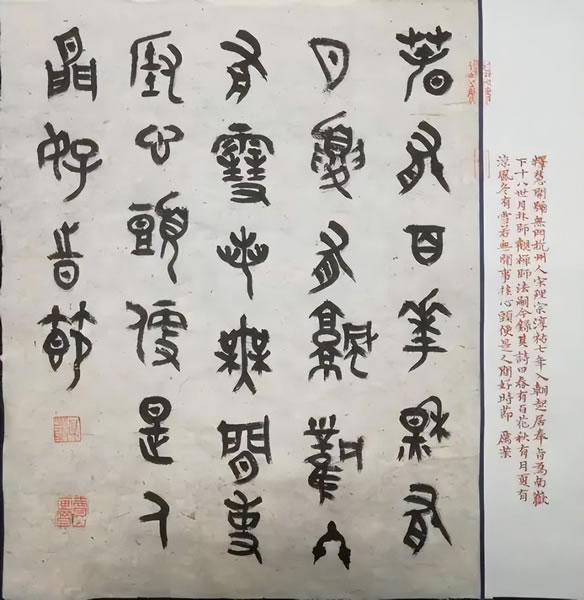 春有百華秋有
月夏有涼風冬
有雪若無閒事
挂心頭便是人
間好時節
釋慧開號無門杭州人宋理宗淳祐七年入朝起居奉旨為南嶽
下十八世月林師觀禪師法嗣今錄其詩曰春有百花秋有月夏有
涼風冬有雪若無閒事挂心頭便是人間好時節